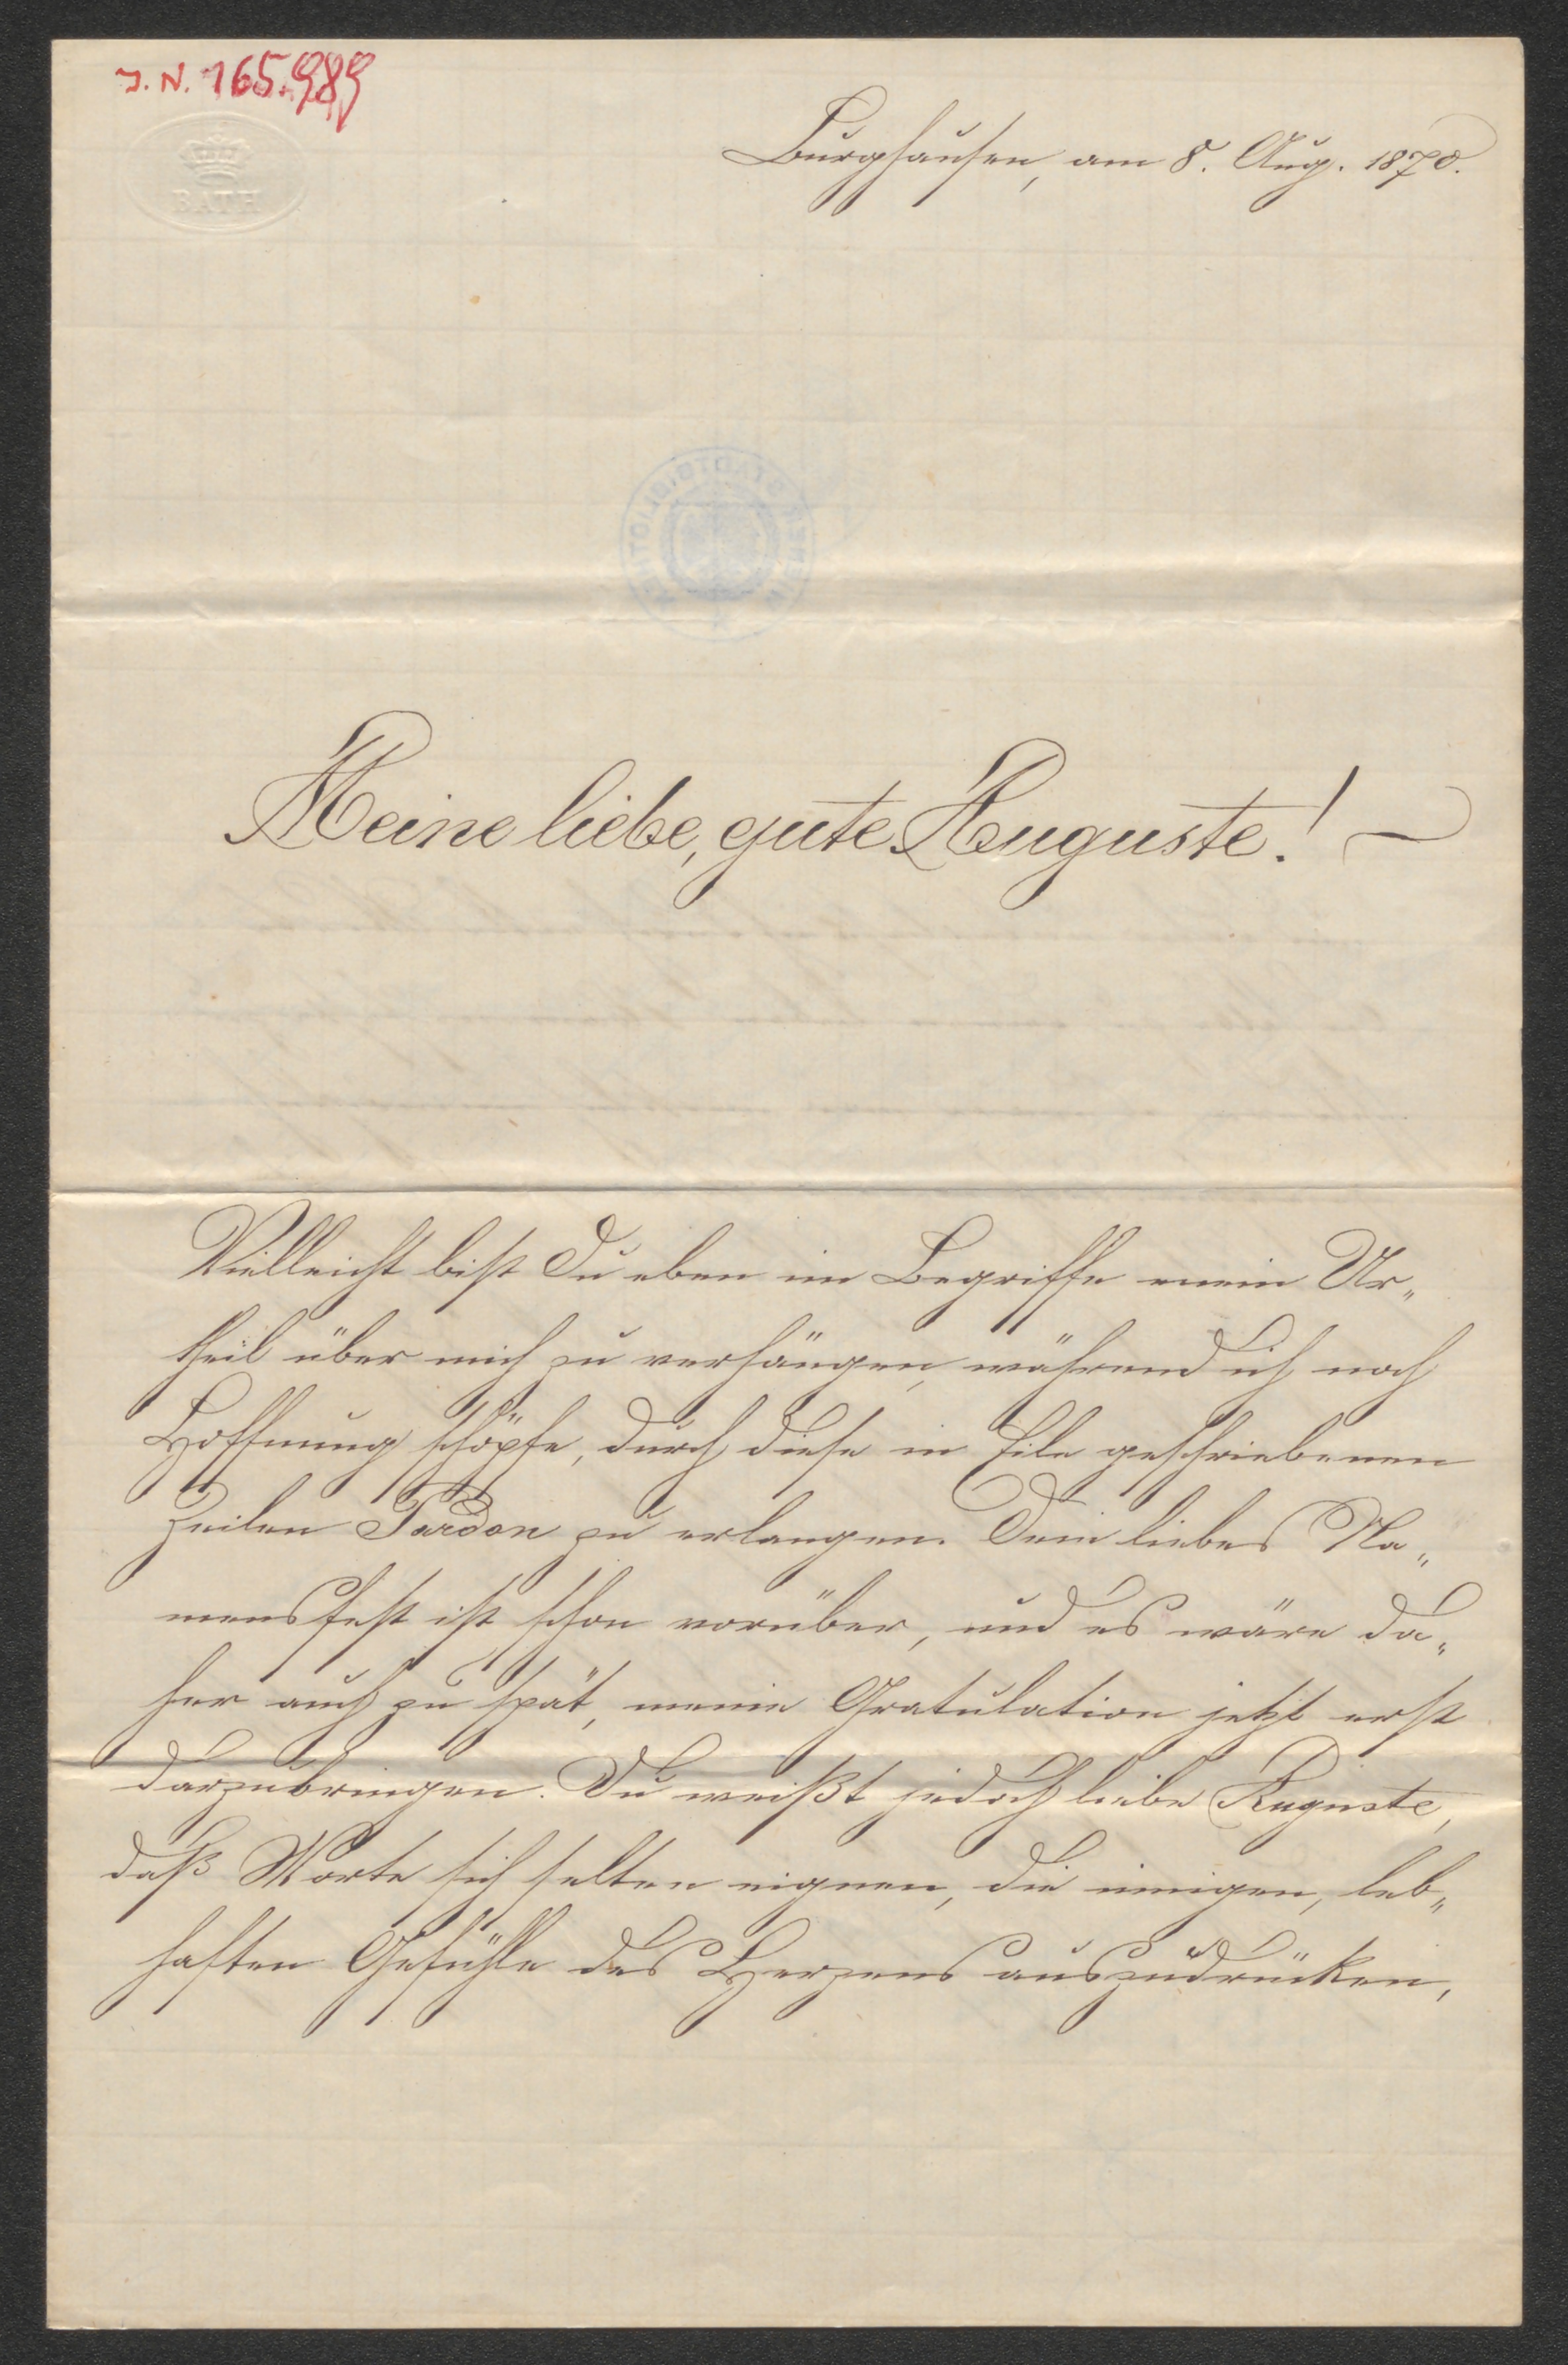 J. N. 165.989
BATH
Burghausen, am 8. Aug. 1870.
Meine liebe, gute Auguste! —
Vielleicht bist Du eben im Begriffe mein Ur„
theil über mich zu verhängen, während ich noch
Hoffnung schöpfe, durch diese in Eile geschriebenen
Zeilen Pardon zu erlangen. Dein liebes Na„
mensfest ist schon vorüber, und es wäre da„
her auch zu spät, meine Gratulation jetzt erst
darzubringen. Du weißt jedoch liebe Auguste,
daß Worte sich selten eignen, die innigen, leb„
haften Gefühle des Herzens auszudrücken,